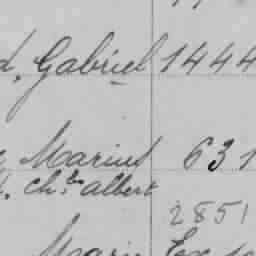 d, Gabriel 1444
Marius 631
ch. albert
2851
Marin Ex